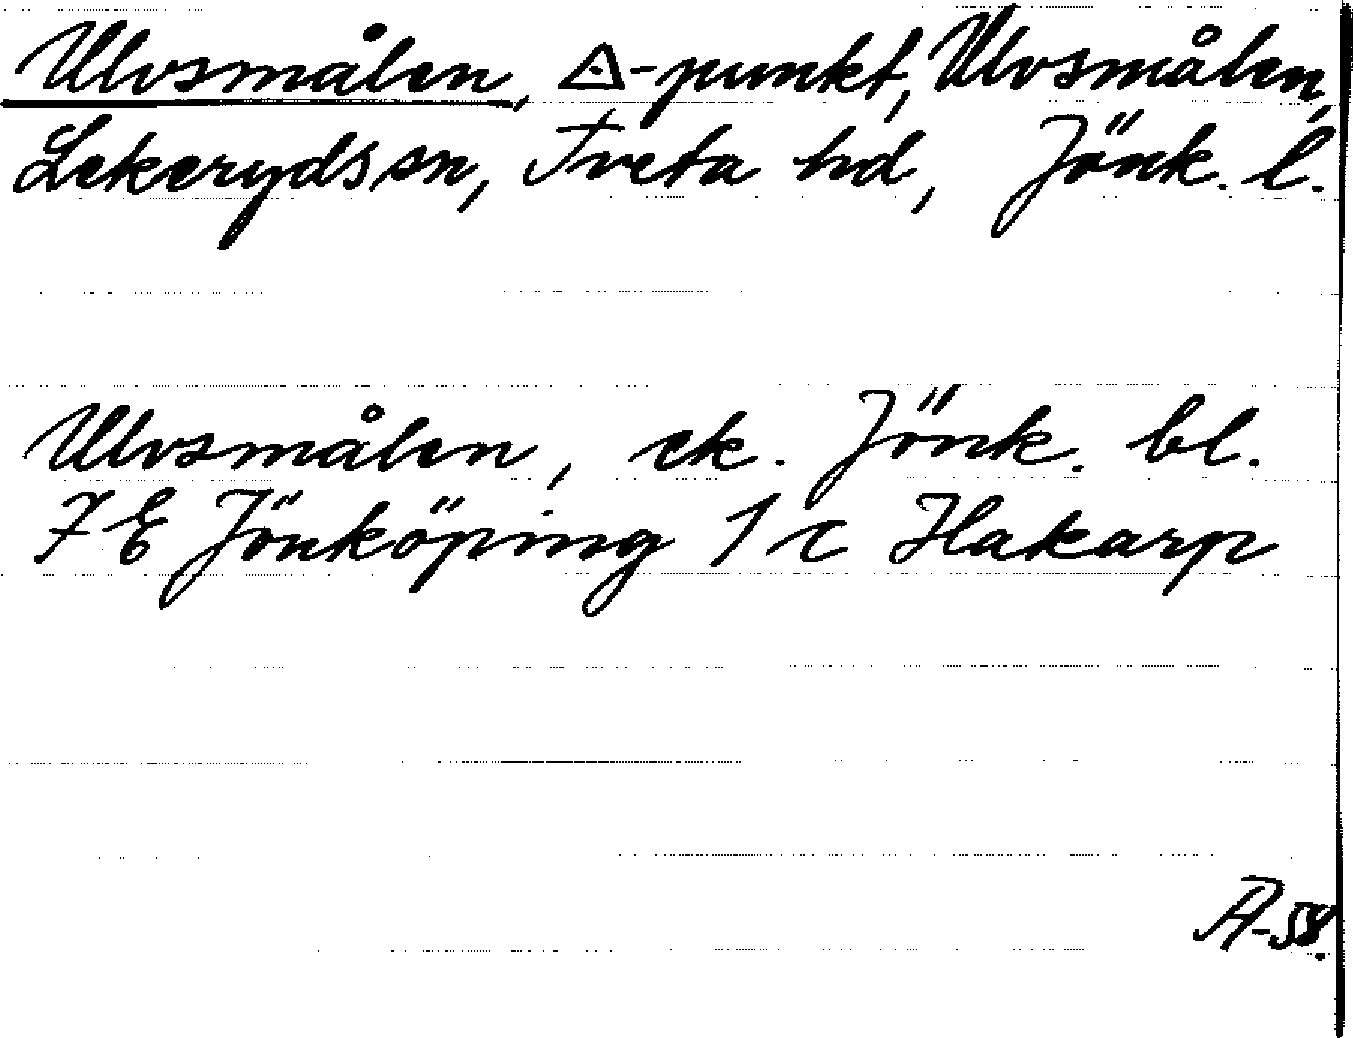 Ulvsmålen, △-punkt, Ulvsmålen,
Lekeryds sn, Tveta hd, Jönk. l.
Ulvsmålen, ek. Jönk. bl.
7 E Jönköping 1 c Hakarp
A-58.